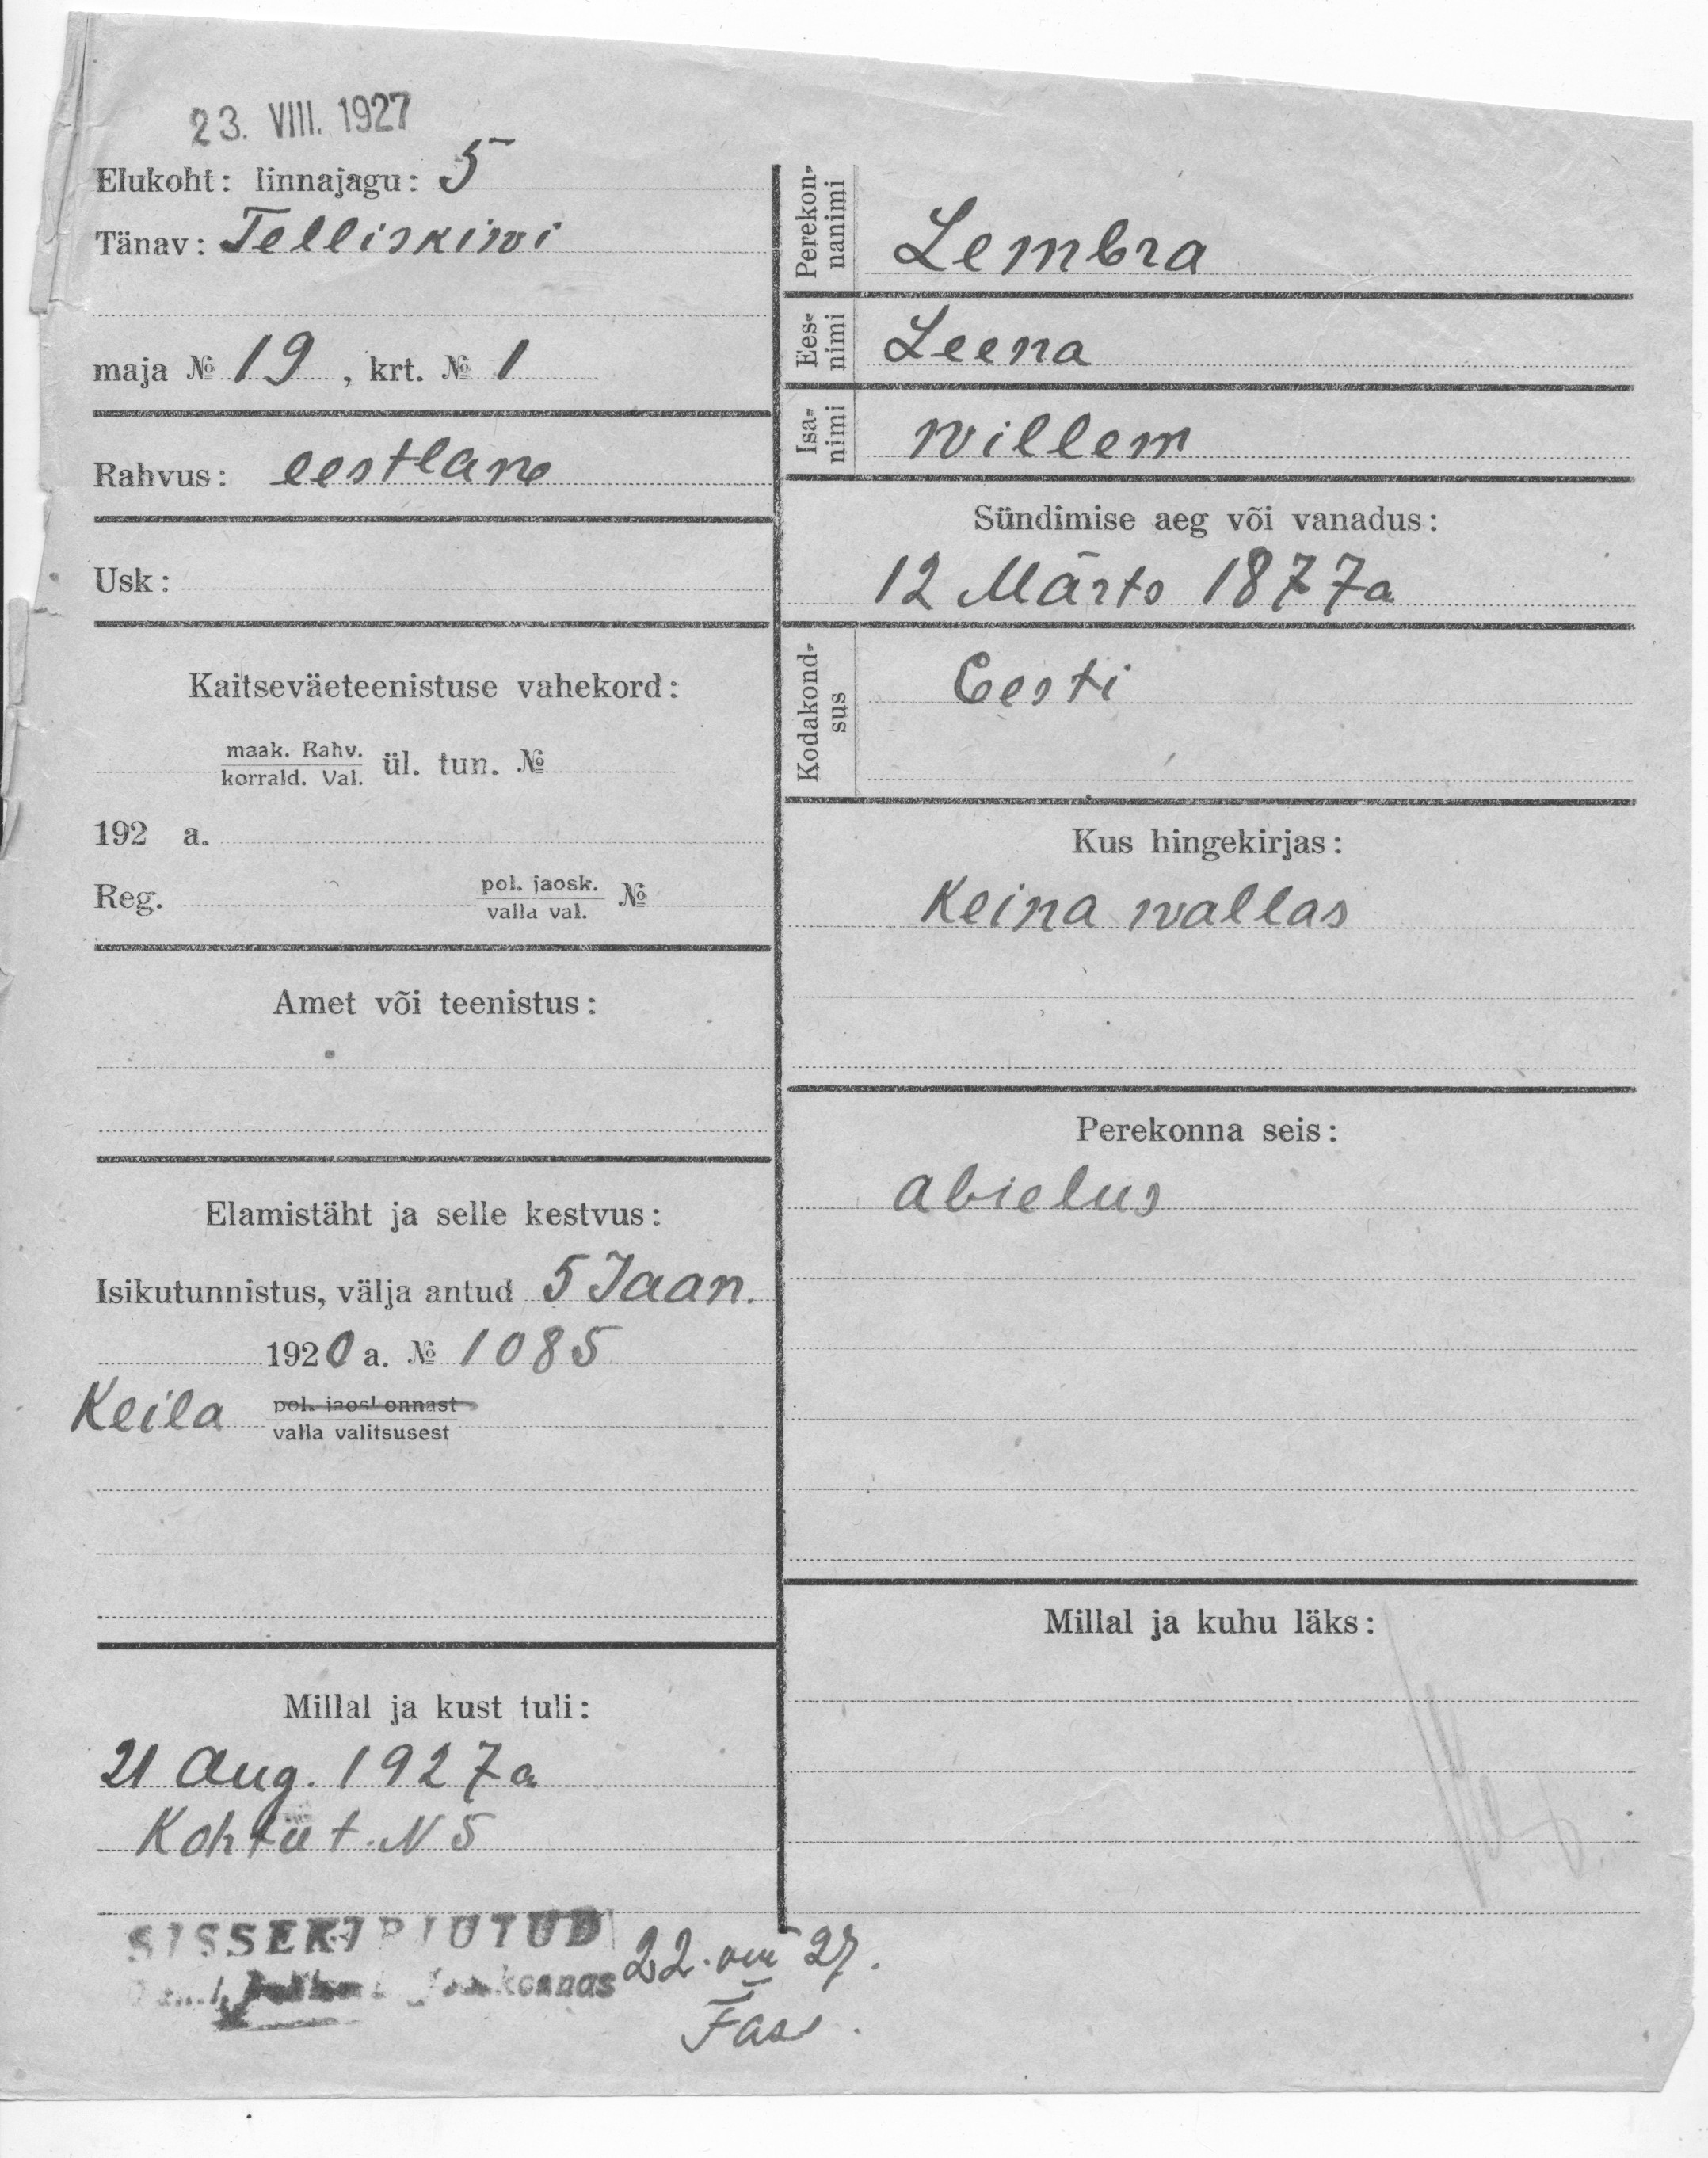 23. VIII. 1927
Elukoht: linnajagu: 5
Tänav: Telliskiwi
maja № 19, krt. № 1
Rahvus: eestlane
Usk:
Kaitseväeteenistuse vahekord:
maak. Rahv.
korrald. Val.
ül. tun. №
192 a.
Reg. pol. jaosk. №
valla val.
Amet või teenistus:
Elamistäht ja selle kestvus:
Isikutunnistus, välja antud 5 Jaan.
1920 a. № 1085
Keila pol. jaoskonnast
valla valitsusest
Millal ja kust tuli:
21 Aug. 1927 a
Kohtu t. N 5
SISSEKIRJUTUD
jaoskonnas
22. VIII 27.
Perekonnanimi
Lembra
Eesnimi
Leena
Isanimi
willem
Sündimise aeg või vanadus:
12 Märts 1877a
Kodakondsus
Eesti
Kus hingekirjas:
Keina wallas
Perekonna seis:
abielus
Millal ja kuhu läks: